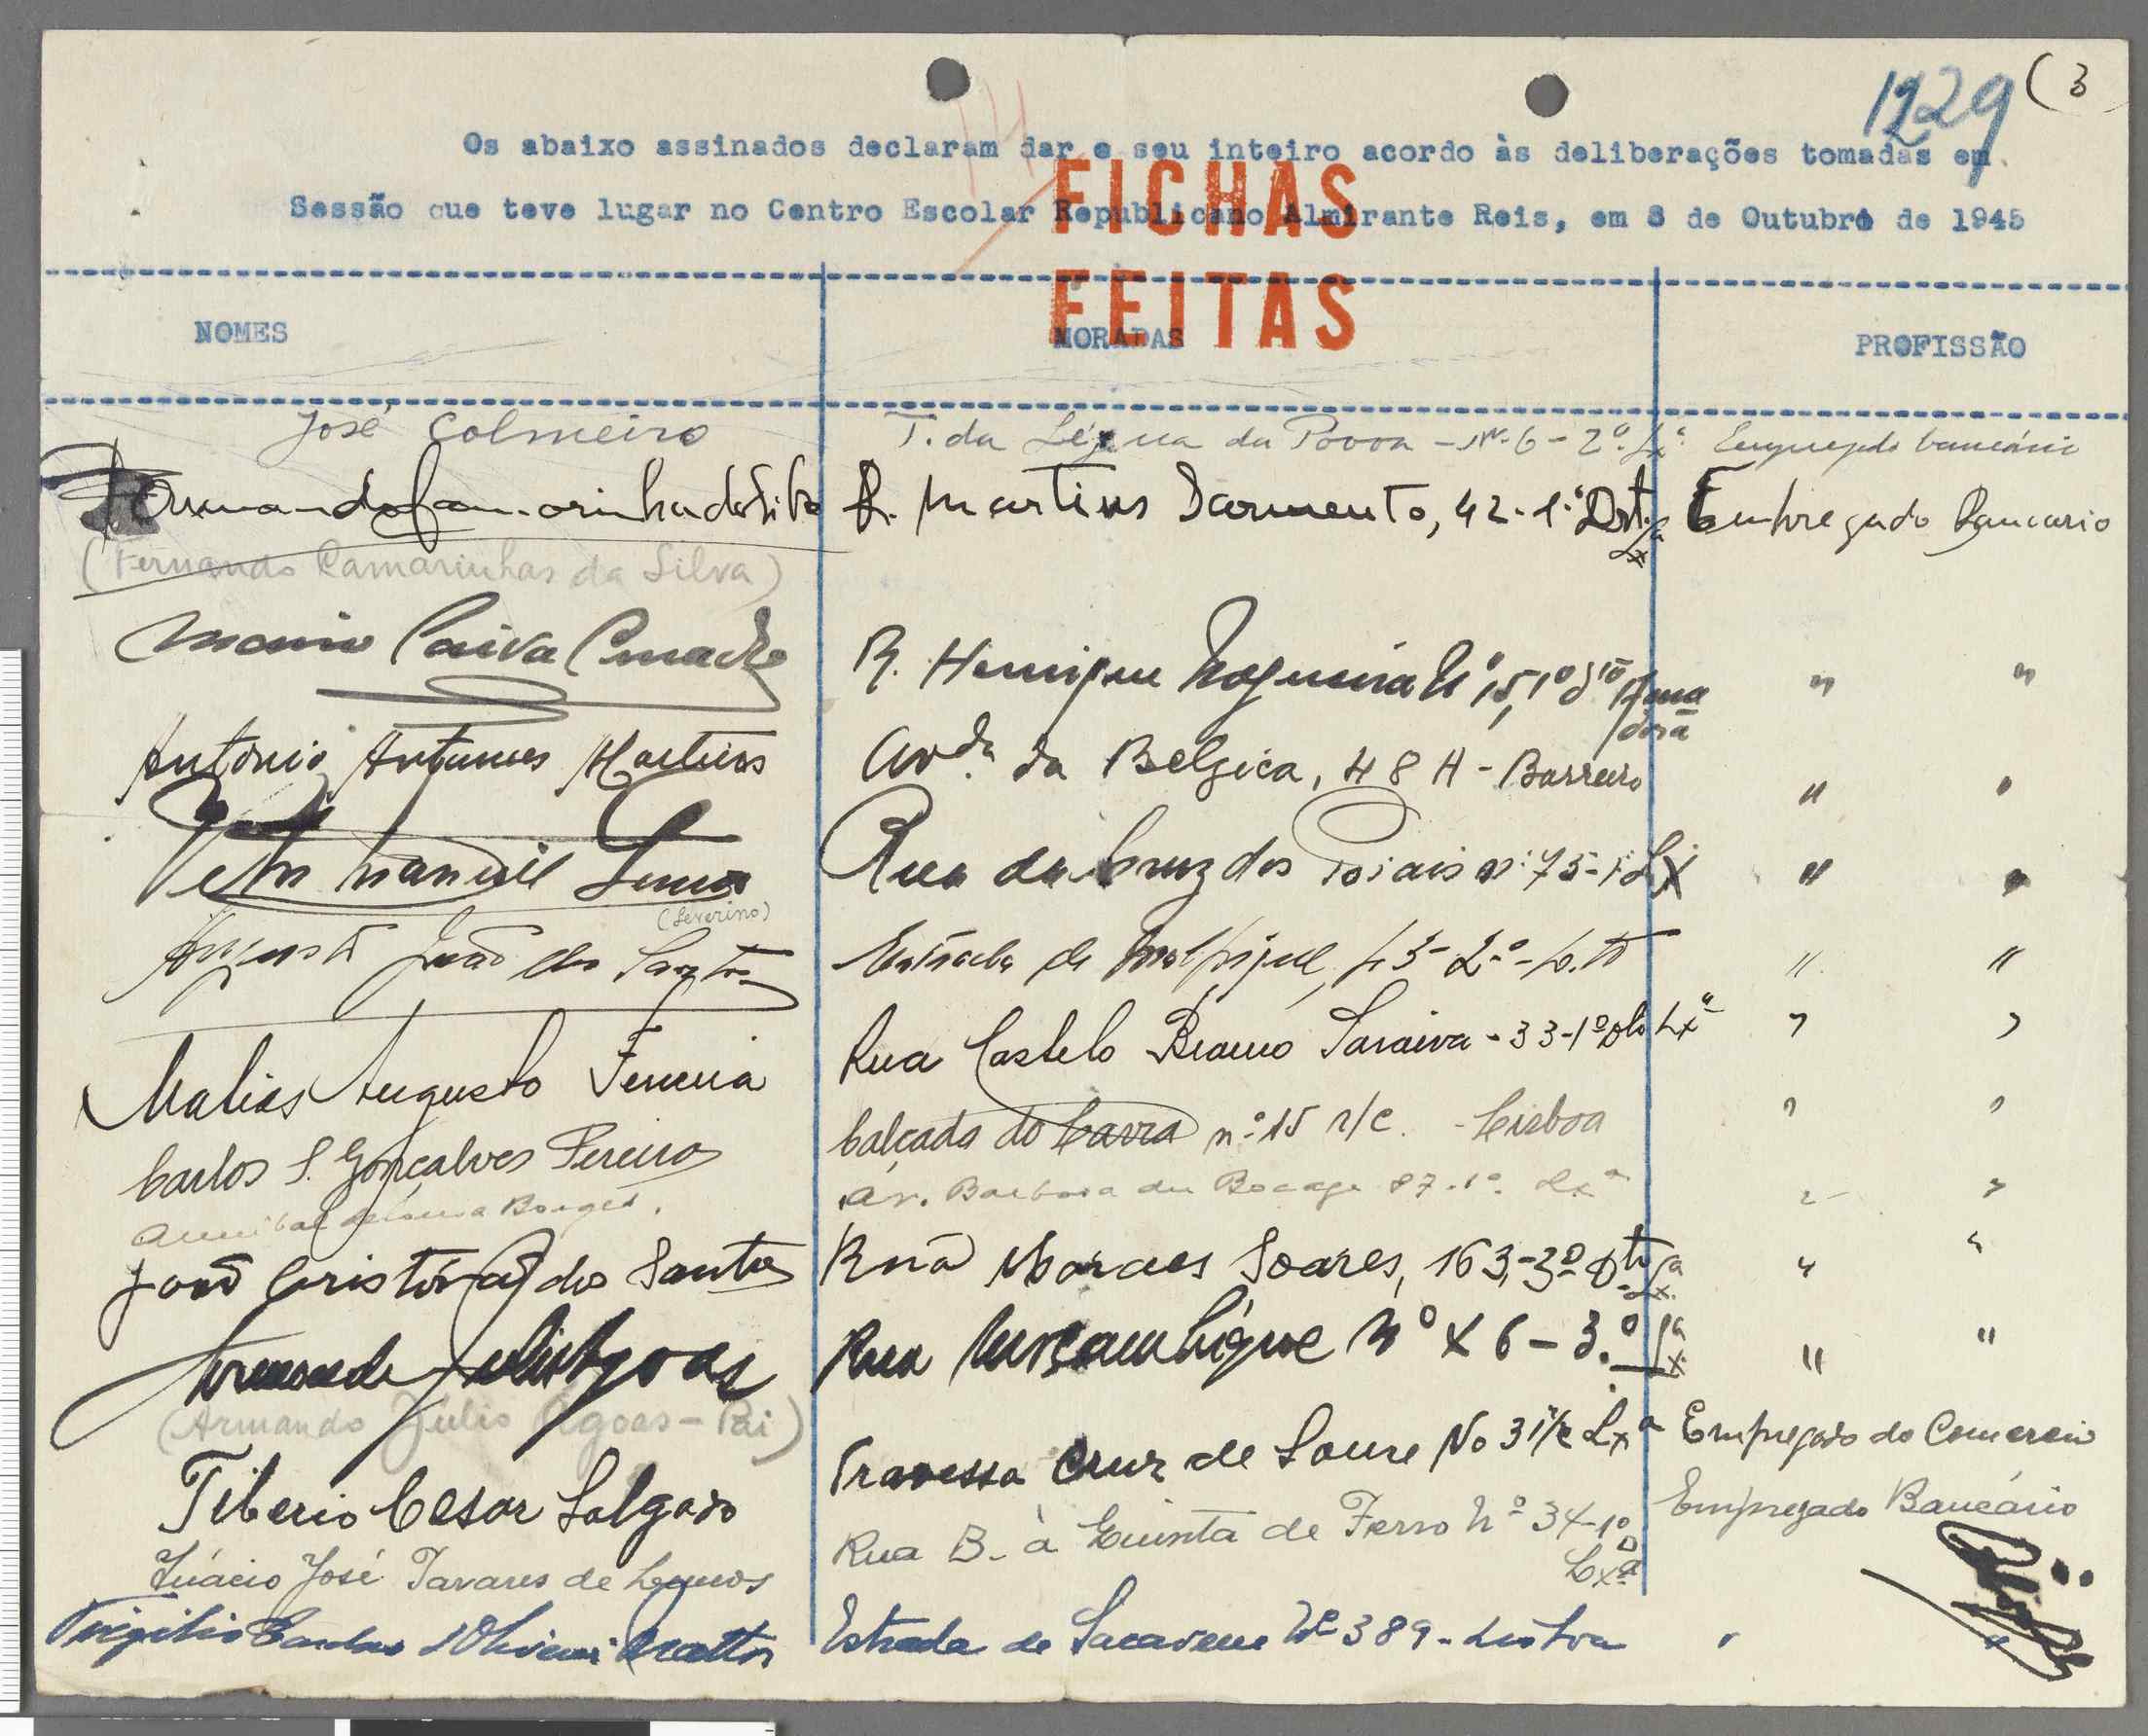 1229 (3
Os abaixo assinados declaram dar o seu inteiro acordo às deliberações tomadas em
Sessão que teve lugar no Centro Escolar Republicano Almirante Reis, em 8 de Outubro de 1945
FICHAS
FEITAS
NOMES MORADAS PROFISSÃO
José Colmeiro T. da Légua da Povoa - Nº 6 - 2º. Lxª. Empregado bancário
Fernando Camarinhas da Silva R. Martins Sarmento, 42-1º Drt. Lxª Empregado Bancario
(Fernando Camarinhas da Silva)
Mario Paiva R. Henrique Nogueira Nº 15, 1º Amadora " "
António Antunes Martins Avdª. da Belgica, 48 A - Barreiro " "
Manuel Rua da Cruz dos Poiais nº 75-1º Lx " "
(Severino)
Augusto João dos Santos Estrada de 43-2º- " "
Matias Augusto Ferreira Rua Castelo Branco Saraiva - 33-1º Lxª " "
Carlos S. Gonçalves Pereira Calçada do Lavra nº 15 r/c. - Lisboa " "
Annibal Borges. Av. Barbosa du Bocage 87-1º. Lxª " "
João Cristóvão dos Santos Rua Moraes Soares, 163,-3º Dtº Lxª " "
Armando Julio Agoas Rua Moçambique Nº X 6 - 3.º Lxª " "
(Armando Júlio Agoas - Pai)
Tiberio Cesar Salgado Travessa Cruz de Soure No 3 r/c Lxª Empregado do Comercio
Inácio José Tavares de Lemos Rua B. à Quinta de Ferro Nº 34-1º D Lxª Empregado Bancário
Virgilio d'Oliveira Mattos Estrada de Sacavem Nº 389 - Lisboa " "